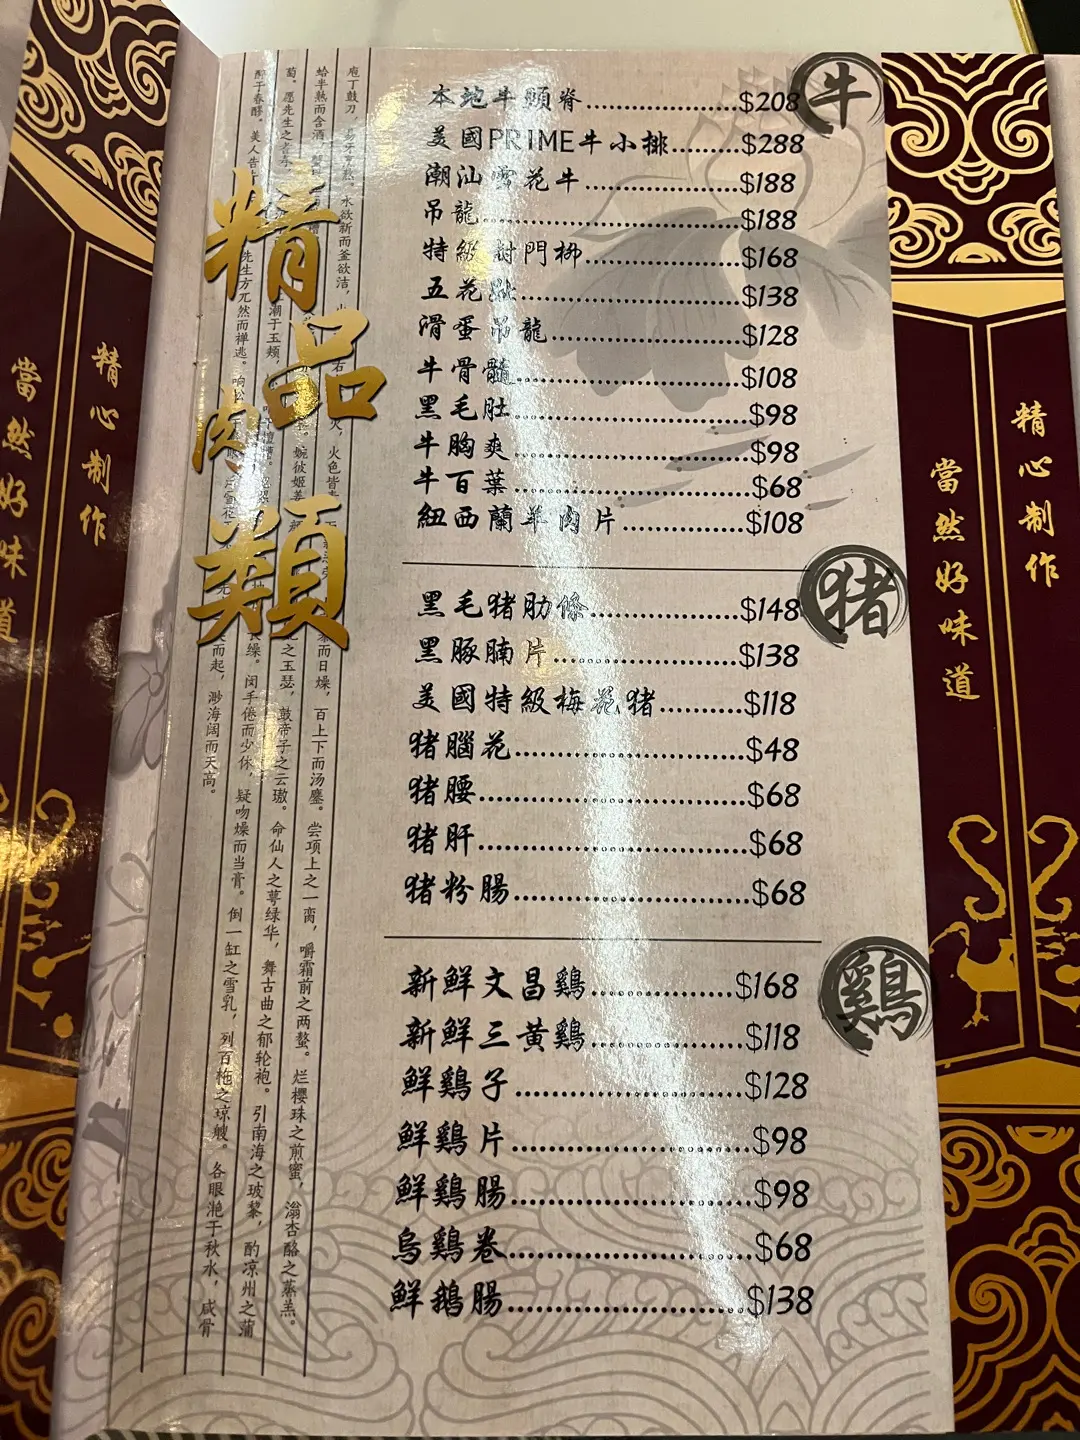 精品肉類
牛
本地牛頸脊 $208
美國PRIME牛小排 $288
潮汕雪花牛 $188
吊龍 $188
特級封門柳 $168
五花腱 $138
滑蛋吊龍 $128
牛骨髓 $108
黑毛肚 $98
牛胸爽 $98
牛百葉 $68
紐西蘭羊肉片 $108
猪
黑毛猪肋條 $148
黑豚腩片 $138
美國特級梅花猪 $118
猪腦花 $48
猪腰 $68
猪肝 $68
猪粉腸 $68
鷄
新鮮文昌鷄 $168
新鮮三黃鷄 $118
鮮鷄子 $128
鮮鷄片 $98
鮮鷄腸 $98
烏鷄卷 $68
鮮鵝腸 $138
精心制作
當然好味道
精心制作
當然好味道
庖丁鼓刀
水欲新而釜欲洁
百上下而汤鏖。尝项上之一脔，嚼霜前之两螯。烂樱珠之煎蜜，滃杏酪之蒸羔。
蛤半熟而含酒
鼓帝子之云璈。命仙人之萼绿华，舞古曲之郁轮袍。引南海之玻黎，酌凉州之蒲
萄。愿先生之
闵手倦而少休，疑吻燥而当膏。倒一缸之雪乳，列百柂之琼艘。各眼滟于秋水，咸骨
醉于春醪。美人告
先生方兀然而禅逃。
而起，渺海阔而天高。